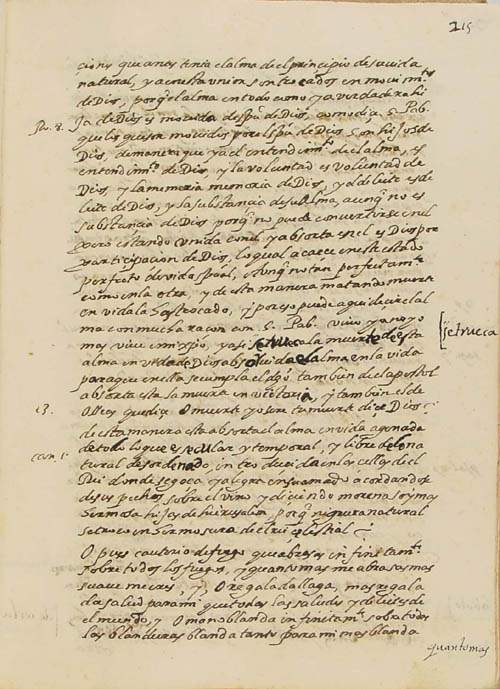 215
ciones que antes tenia el alma de el principio de su vida
natural, ya en esta union son trocados en movimtos
de Dios, porq̃ el alma en todo como ya verdadera hi
Ro. 8. ja de Dios es movida del spu de Dios, como diçe S. Pab.
que los que son movidos por el spu de Dios son hijos de
Dios, de manera que ya el entendimto de el alma, es
entendimto de Dios, y la voluntad es voluntad de
Dios y la memoria memoria de Dios, y el deleite es de
leite de Dios, y la substancia de su alma, aunq̃ no es
substancia de Dios porq̃ no puede convertirse en el
pero estando unida con el y absorta en el es Dios por
participacion de Dios, lo qual acaece en este estado
perfecto de vida spual, aunq̃ no tan perfectamte
como en la otra, y de esta manera matando muerte
en vida la as trocado, y por eso puede aqui decir el al
ma con mucha raçon con S. Pab. vivo yo ya no yo
mas vive en mi xpo, y asi se trueca la muerte de esta
[se trueca
alma en vida de Dios absorvida el alma en la vida
para que en ella se cumpla el dho tambien de el apostol
absorta esta la muerte en victoria, y tambien el de
13. Oseas que diçe O muerte yo sere tu muerte diçe Dios
de esta manera esta absorta el alma en vida agenada
de todo lo que es secular y temporal, y libre de lo na
can. 1. tural desordenado, introducida en las celdas de el
Rei donde se goça y alegra en su amado acordandose
de sus pechos sobre el vino y diciendo morena soy mas
hermosa hijas de hierusalem, porq̃ mi negrura natural
se troco en hermosura de el rei celestial
O pues cauterio de fuego que abrasas infinitamte
sobre todos los fuegos, y quanto mas me abrasas mas
suave me eres, y O regalada llaga, mas regala
da salud para mi que todas las saludes y deleites de
el mundo, y O mano blanda infinitamte sobre todas
las blanduras blanda tanto para mi mas blanda
quanto mas